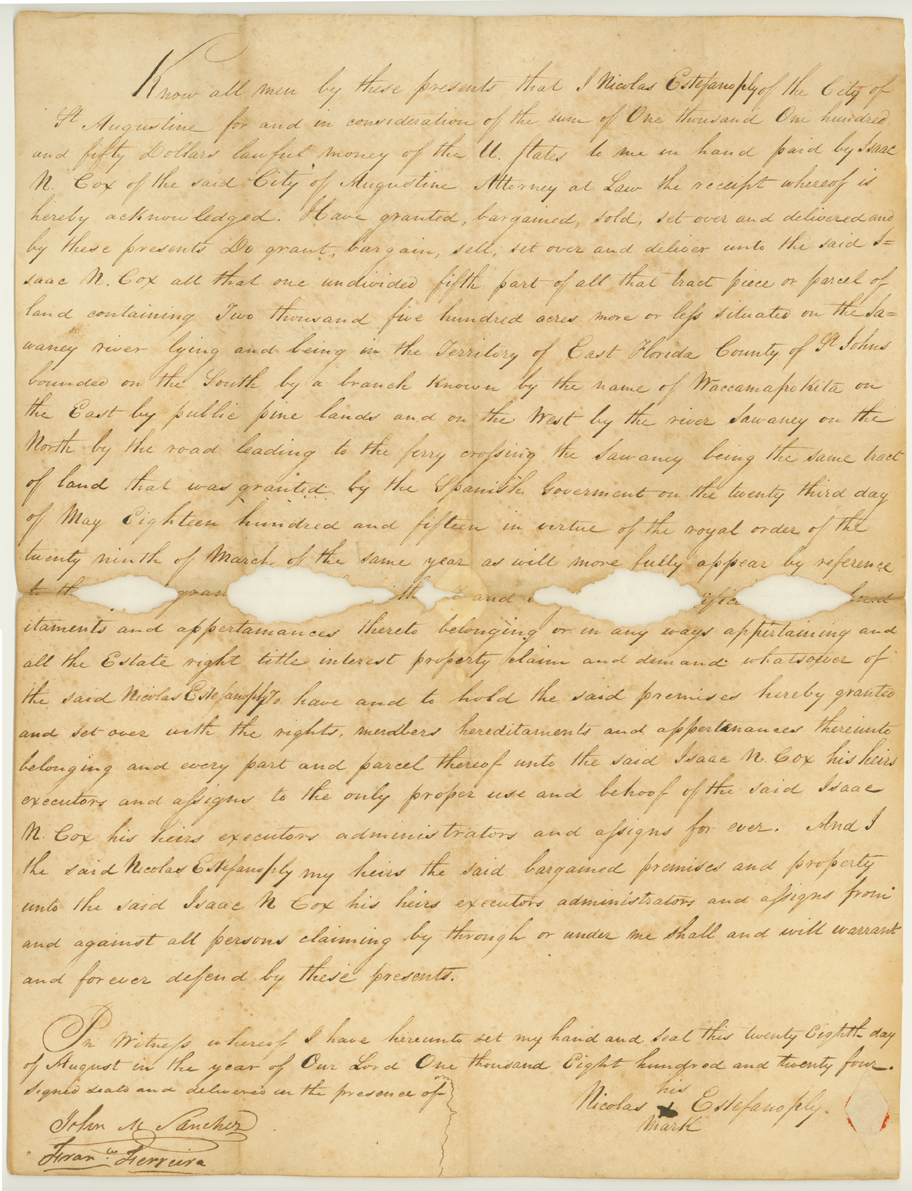 Know all men by these presents that I Nicolas Estefanoply of the City of
St Augustine for and in consideration of the sum of One thousand One hundred
and fifty Dollars lawful money of the U. States to me in hand paid by Isaac
N. Cox of the said City of Augustine Attorney at Law the receipt whereof is
hereby acknowledged. Have granted, bargained, sold, set over and delivered and
by these presents Do grant, bargain, sell, set over and deliver unto the said I=
saac N. Cox all that one undivided fifth part of all that tract piece or parcel of
land containing Two thousand five hundred acres more or less situated on the Sa=
waney river lying and being in the Territory of East Florida County of St Johns
bounded on the South by a branch known by the name of Waccamapokita on
the East by public pine lands and on the West by the river Sawaney on the
North by the road leading to the ferry crossing the Sawaney being the same tract
of land that was granted by the Spanish Goverment on the twenty third day
of May Eighteen hundred and fifteen in virtue of the royal order of the
twenty ninth of March of the same year as will more fully appear by reference
to th gran th and
itaments and appertamances thereto belonging or in any ways appertaining and
all the Estate right title interest property claim and demand whatsoever of
the said Nicolas Estefanoply To have and to hold the said premises hereby granted
and set over with the rights, members hereditaments and appertenances thereunto
belonging and every part and parcel thereof unto the said Isaac N. Cox his heirs
executors and assigns to the only proper use and behoof of the said Isaac
N. Cox his heirs executors administrators and assigns for ever. And I
the said Nicolas Estefanoply my heirs the said bargained premises and property
unto the said Isaac N Cox his heirs executors administrators and assigns from
and against all persons claiming by through or under me shall and will warrant
and forever defend by these presents.
In Witness whereof I have hereunto set my hand and seal this twenty Eighth day
of August in the year of Our Lord One thousand Eight hundred and twenty four.
Signed seald and delivered in the presence of
his
Nicolas x Estefanoply.
mark
John M Sanchez
Franco Ferreira